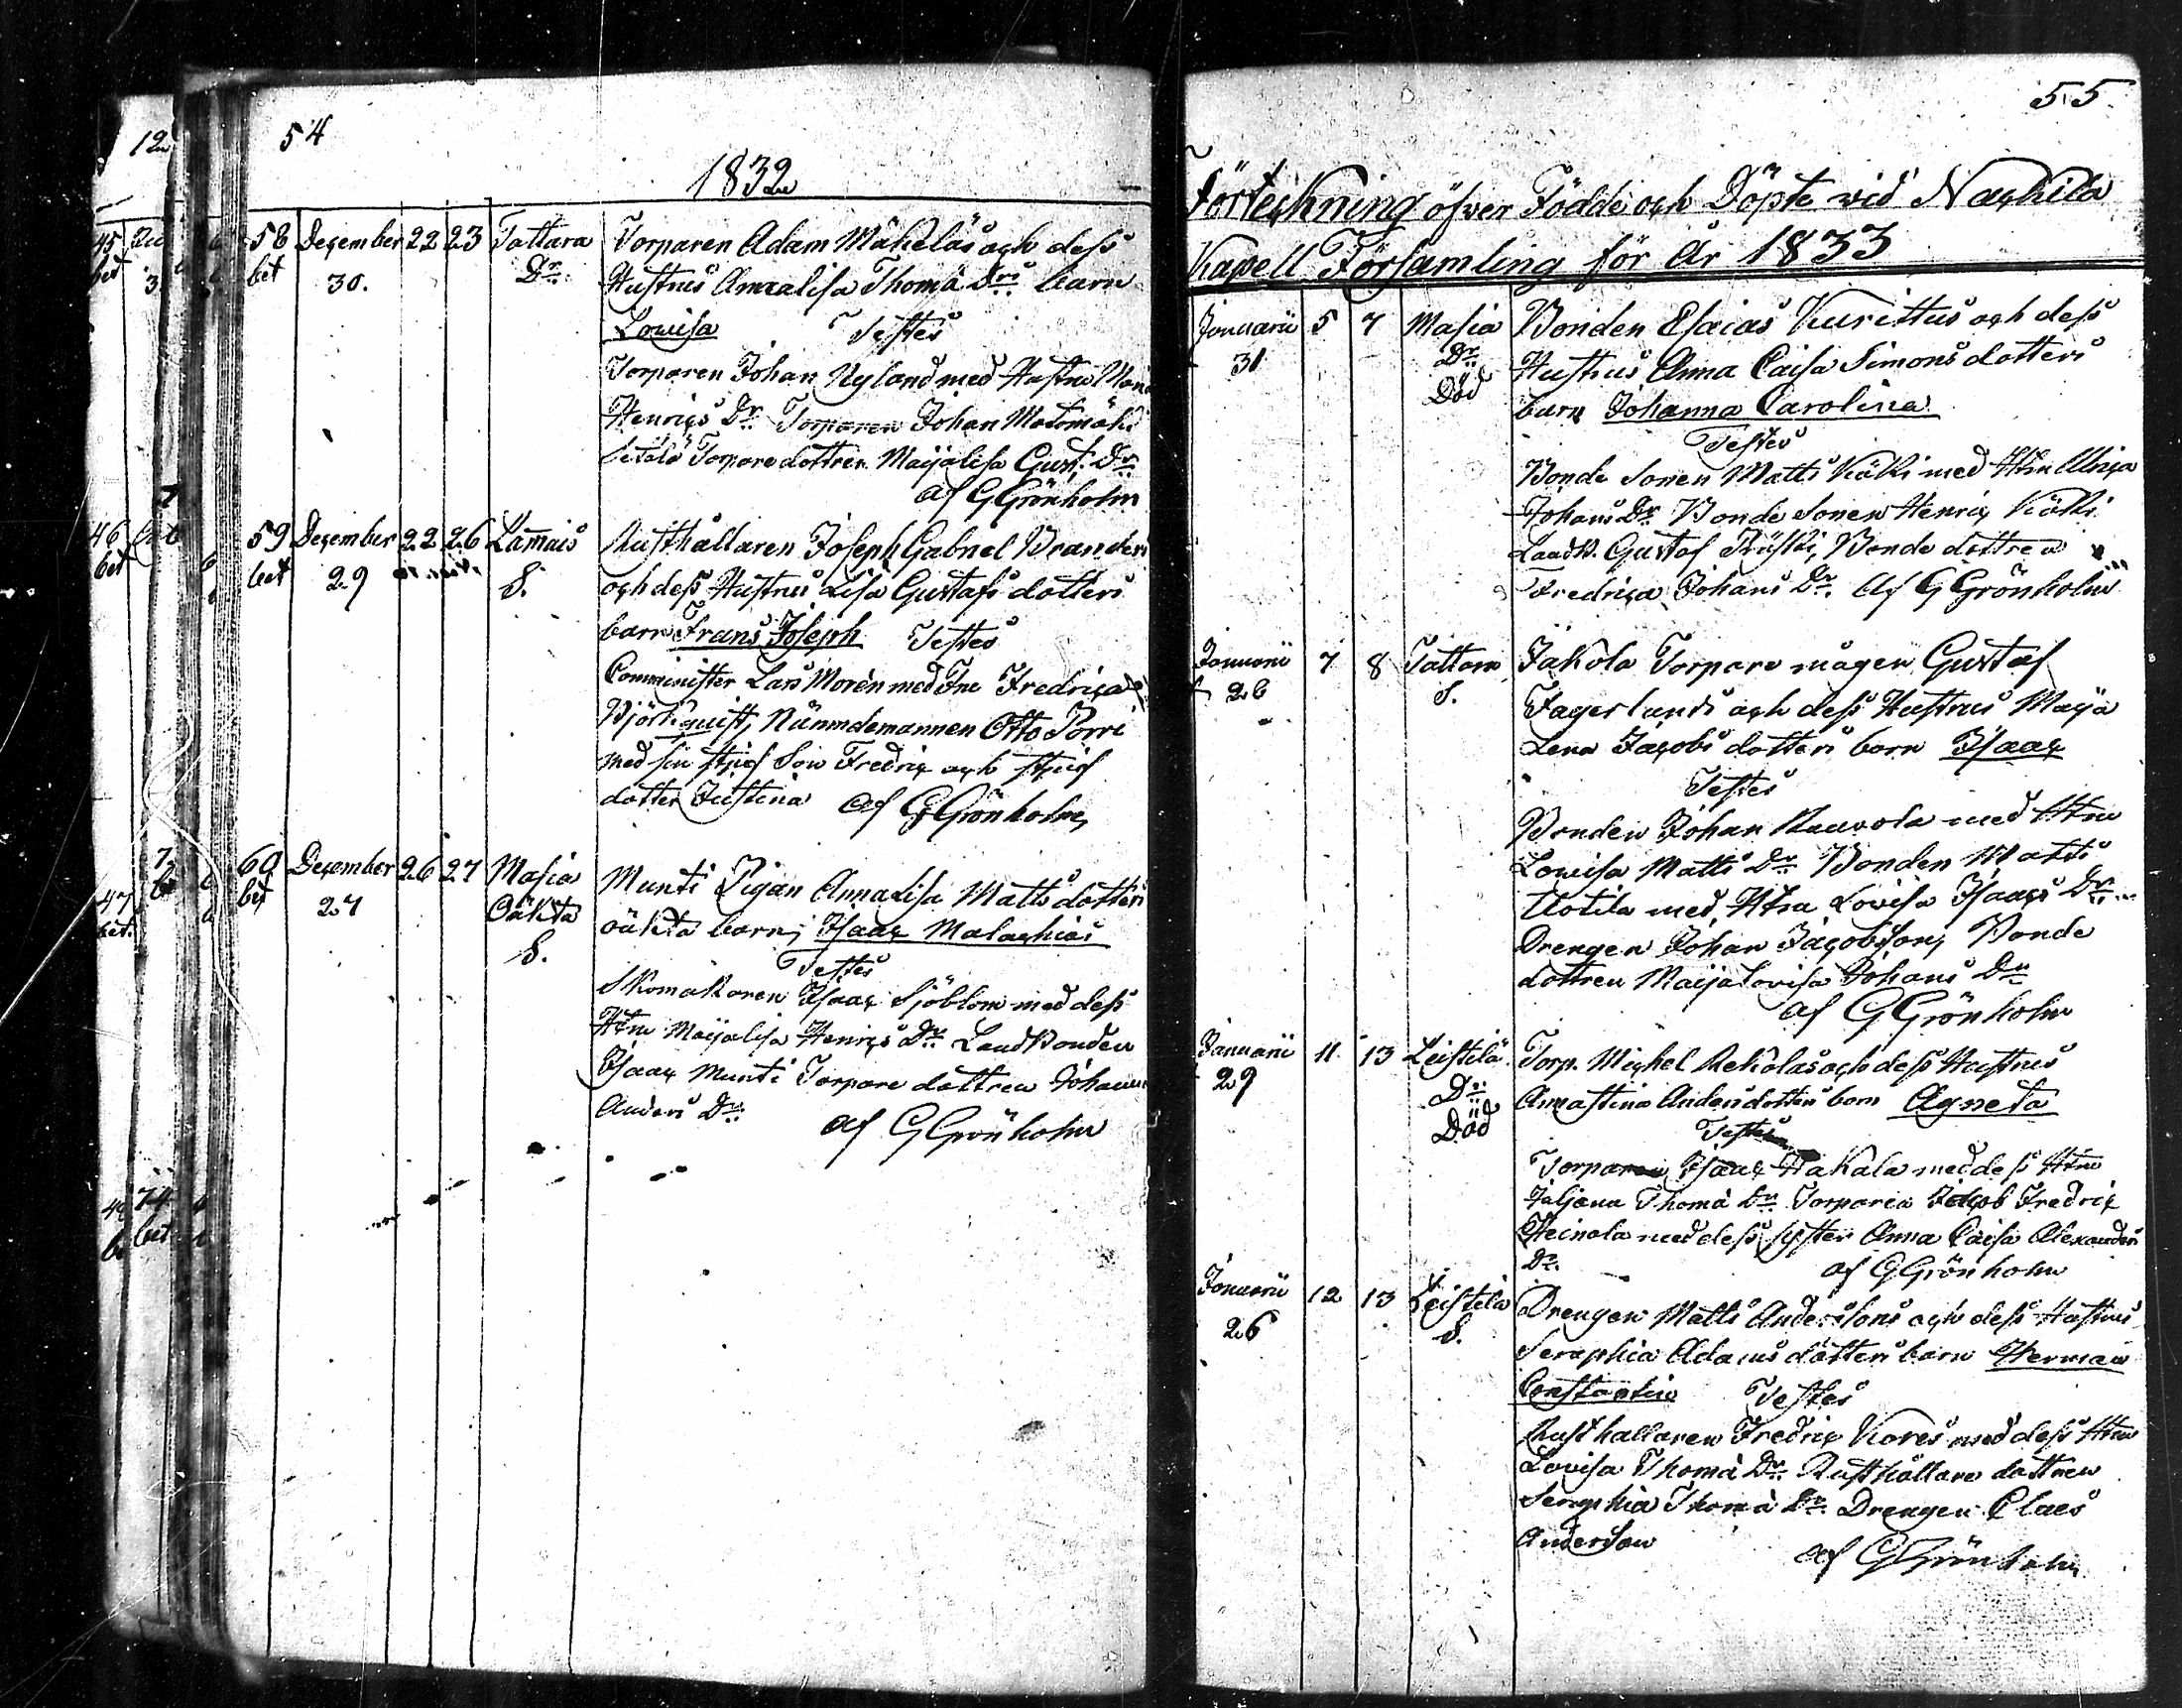 54
1832
58 December 22 23 Tattara Torparen Adam Mäkeläs och dess
bet 30. Dr. Hustrus Annalisa Thomä Drs barn
Lowisa Testes
Torparen Johan Nyland med Hustru
Henrics Dr Torparen Johan
Torpare dottren Maijalisa Gust. Dr
af G Grönholm
59 December 22 26 Lamais Rusthållaren Joseph Gabriel Branders
bet 29 S. och dess Hustrus Lisa Gustafs dotters
barn Frans Joseph Testes
Comminister Lars Morén med Fru Fredrica
Björkquist, Nämndemannen Otto Porri
med sin stjuf Son Fredric och stjuf
dotter Justina af G Grönholm
60 December 26 27 Masia Munti Pigan Annalisa Matts dotters
bet 27 Oäkta S. oäkta barn, Isaac Malachias
Testes
Skomakaren Isaac Sjöblom med dess
Htru Maijalisa Henrics Dr Landbonden
Isaac Munti Torpare dottren Johanna
Anders Dr
af G Grönholm
55
Förteckning öfver Födde och Döpte wid Nackila
Kapell Församling för År 1833
Januarii 5 7 Masia Bonden Esaias Kurittus och dess
31 Dr Död Hustrus Anna Caisa Simons dotters
barn Johanna Carolina
Testes
Bonde Sonen Matts Käki med Htru Ulrica
Johans Dr Bonde Sonen Henric Käki
Landb. Gustaf Bonde dottren
Fredrica Johans Dr. Af G Grönholm
Januarii 7 8 Tattara Jakola Torpare mågen Gustaf
26 S. Fagerlunds och dess Hustrus Maija
Lena Jacobs dotters barn Isaac
Testes
Bonden Johan med Htru
Lowisa Matts Dr Bonden Matts
Uotila med Htru Lovisa Isaacs Dr
Drengen Johan Jacobsson, Bonde
dottren Maija Lovisa Johans Dr
af G Grönholm
Januarii 11 13 Leistilä Torp. Michel Rekolas och dess Hustrus
29 Dr Död Annastina Anders dotters barn Agneta
Testes
Torparen Isaac Hakala med dess Htru
Juljana Thomä Dr Torparen Jacob Fredric
Heinola med dess syster Anna Caisa Alexanders
Dr. af G Grönholm
Januarii 12 13 Leistilä Drengen Matts Anderssons och dess Hustrus
26 S. Seraphia Adams dotters barn Herman
Constantin Testes
Rusthållaren Fredric Kares med dess Htru
Lovisa Thomä Dr Rusthållare dottren
Seraphia Thomä Dr Drengen Claes
Andersson
af G Grönholm